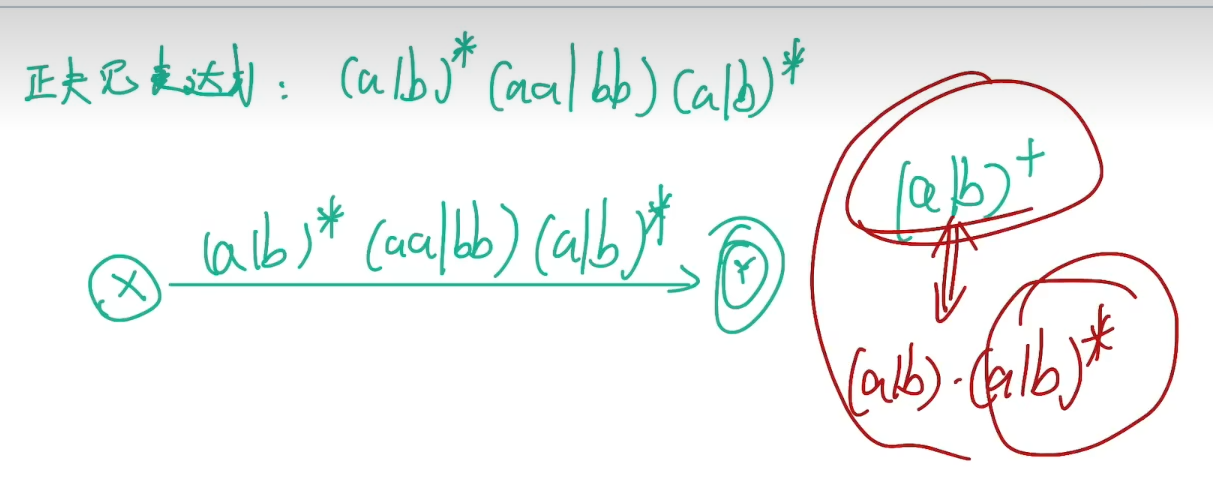 正夫见表达式: (a|b)* (aa|bb) (a|b)*
(a|b)+
(a|b)* (aa|bb) (a|b)*
X Y
(a|b)·(a|b)*